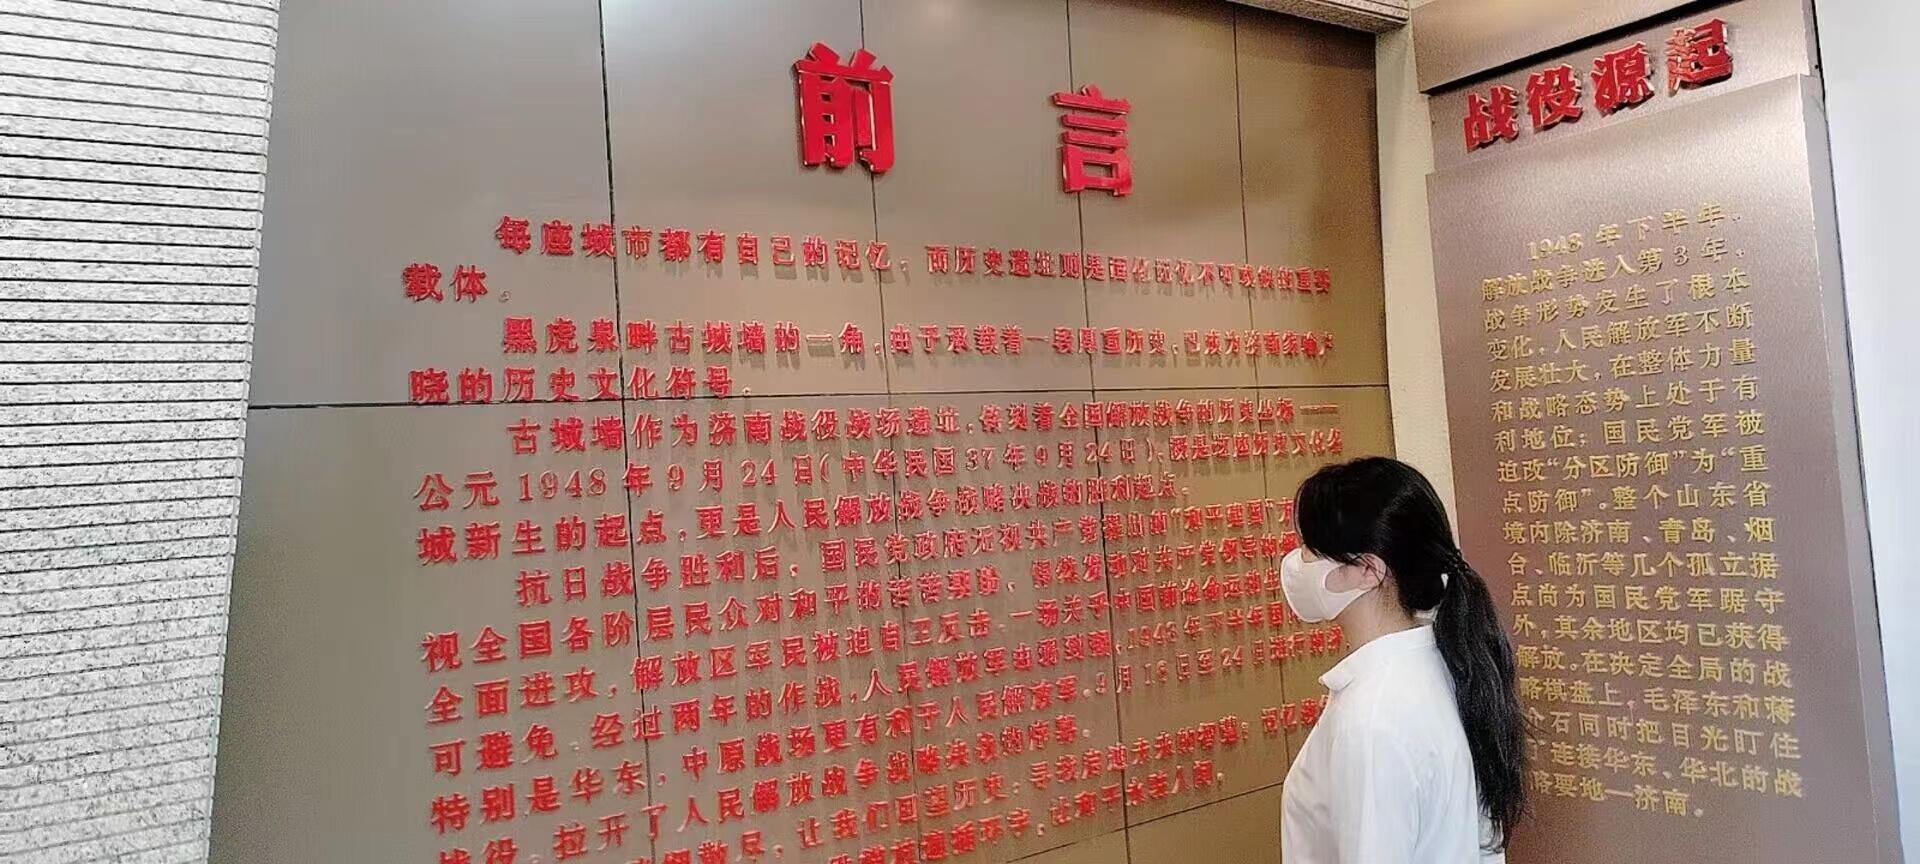 前言
每座城市都有自己的记忆，而历史遗址则是活化记忆不可或缺的重要
载体。
黑虎泉畔古城墙的一角，由于承载着一段厚重历史，已成为济南家喻户
晓的历史文化符号。
古城墙作为济南战役战场遗址，镌刻着全国解放战争的历史坐标——
公元1948年9月24日（中华民国37年9月24日），既是这座历史文化名
城新生的起点，更是人民解放战争战略决战的胜利起点。
抗日战争胜利后，国民党政府无视共产党提出的“和平建国”方
视全国各阶层民众对和平的苦苦哀盼，悍然发动对共产党领导的
全面进攻，解放区军民被迫自卫反击，一场关乎中国前途命运的
可避免。经过两年的作战，人民解放军由弱到强，1948年下半年
特别是华东，中原战场更有利于人民解放军。9月16日至24日进行的济
战役，拉开了人民解放战争战略决战的序幕。
让我们回望历史；寻找启迪未来的智慧；记忆
让和平永驻人间。
战役源起
1948年下半年，
解放战争进入第3年，
战争形势发生了根本
变化，人民解放军不断
发展壮大，在整体力量
和战略态势上处于有
利地位；国民党军被
迫改“分区防御”为“重
点防御”。整个山东省
境内除济南、青岛、烟
台、临沂等几个孤立据
点尚为国民党军踞守
外，其余地区均已获得
解放。在决定全局的战
略棋盘上，毛泽东和蒋
介石同时把目光盯住
了连接华东、华北的战
略要地—济南。